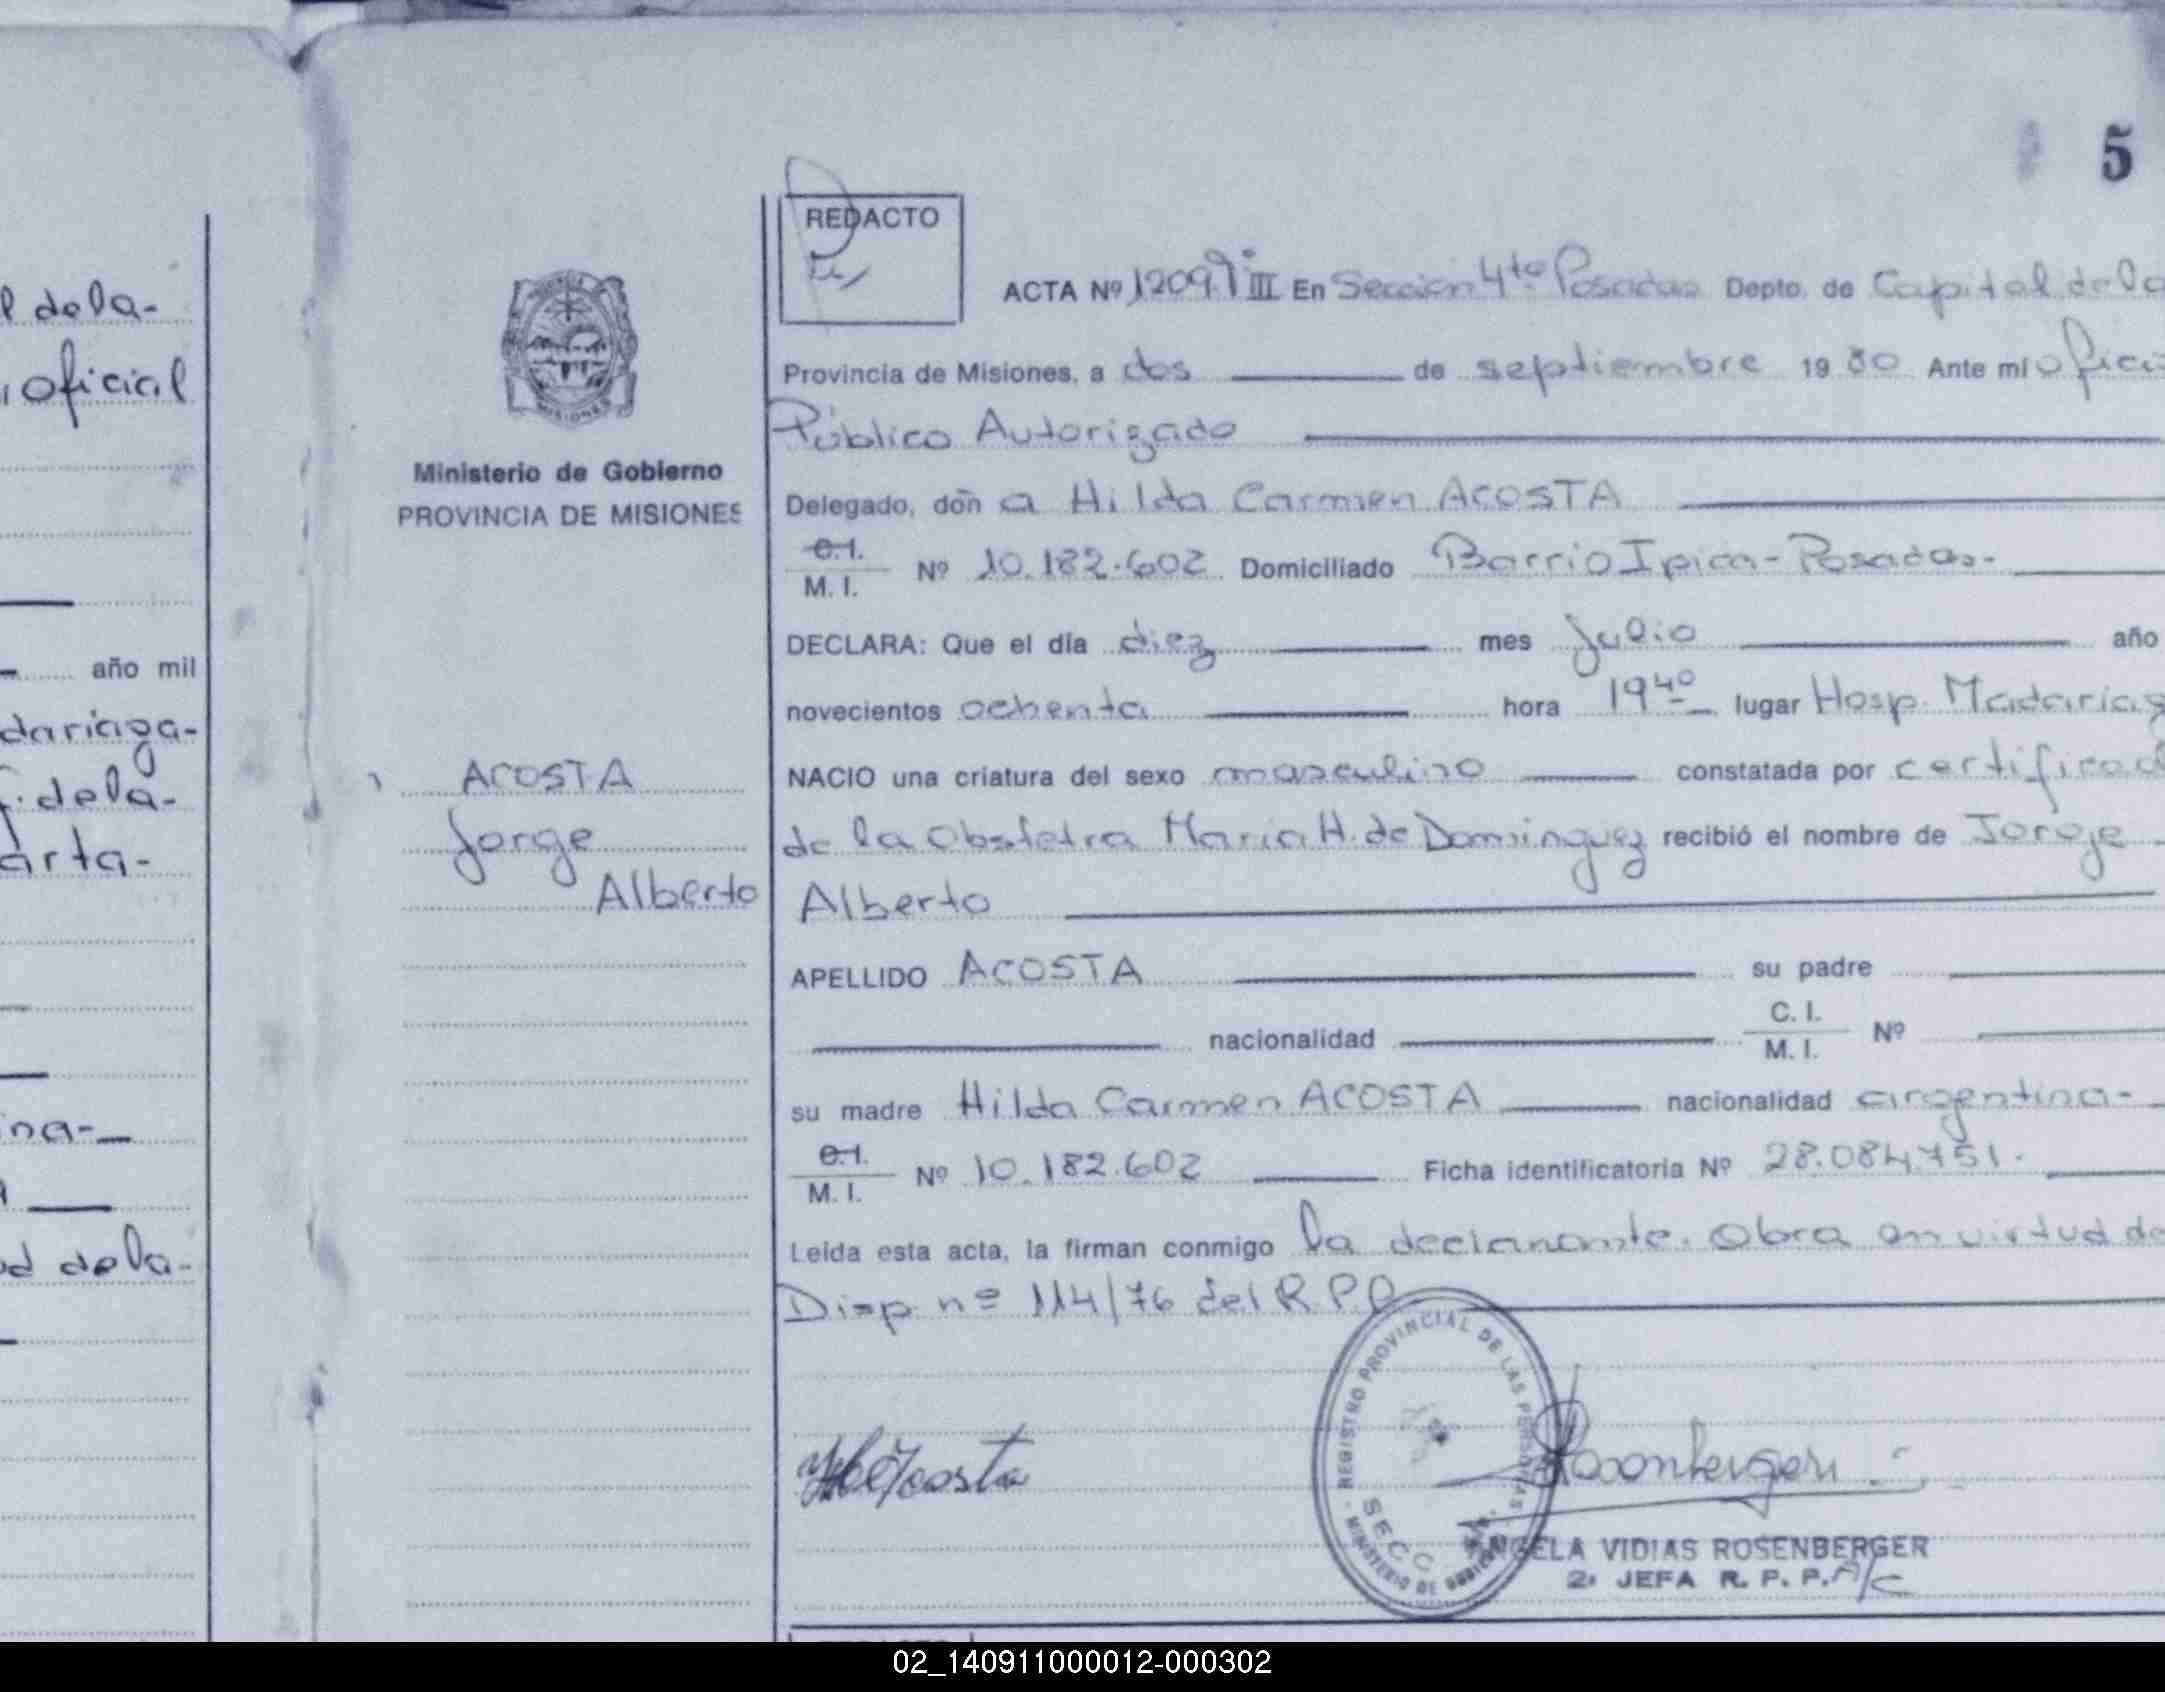 5
l dela-
oficial
año mil
dariaga-
dela-
arta-
ina-
d dela-
MISIONES
Ministerio de Gobierno
PROVINCIA DE MISIONES
ACOSTA
Jorge
Alberto
REDACTO
ACTA Nº 1209 T III En Sección 4ta Posadas Depto. de Capital de la
Provincia de Misiones, a dos de septiembre 19 80 Ante mí Ofici
Público Autorizado
Delegado, don a Hilda Carmen ACOSTA
C.I.
M. I. Nº 10.182.602 Domiciliado Barrio Ipica-Posadas-
DECLARA: Que el día diez mes Julio año
novecientos ochenta hora 19 40 lugar Hosp. Madariag
NACIO una criatura del sexo masculino constatada por certificad
de la Obstetra Maria H. de Dominguez recibió el nombre de Jorge
Alberto
APELLIDO ACOSTA su padre
nacionalidad C. I.
M. I. Nº
su madre Hilda Carmen ACOSTA nacionalidad argentina-
C.I.
M. I. Nº 10.182.602 Ficha identificatoria Nº 28.084.751.
Leída esta acta, la firman conmigo la declarante. Obra en virtud de
Disp. nº 114/76 del R.P.P.
REGISTRO PROVINCIAL DE LAS PERSONAS
SECC.
MINISTERIO DE GOBIERNO
Acosta
Rosenberger
ANGELA VIDIAS ROSENBERGER
2ª JEFA R. P. P. A/C
02_140911000012-000302